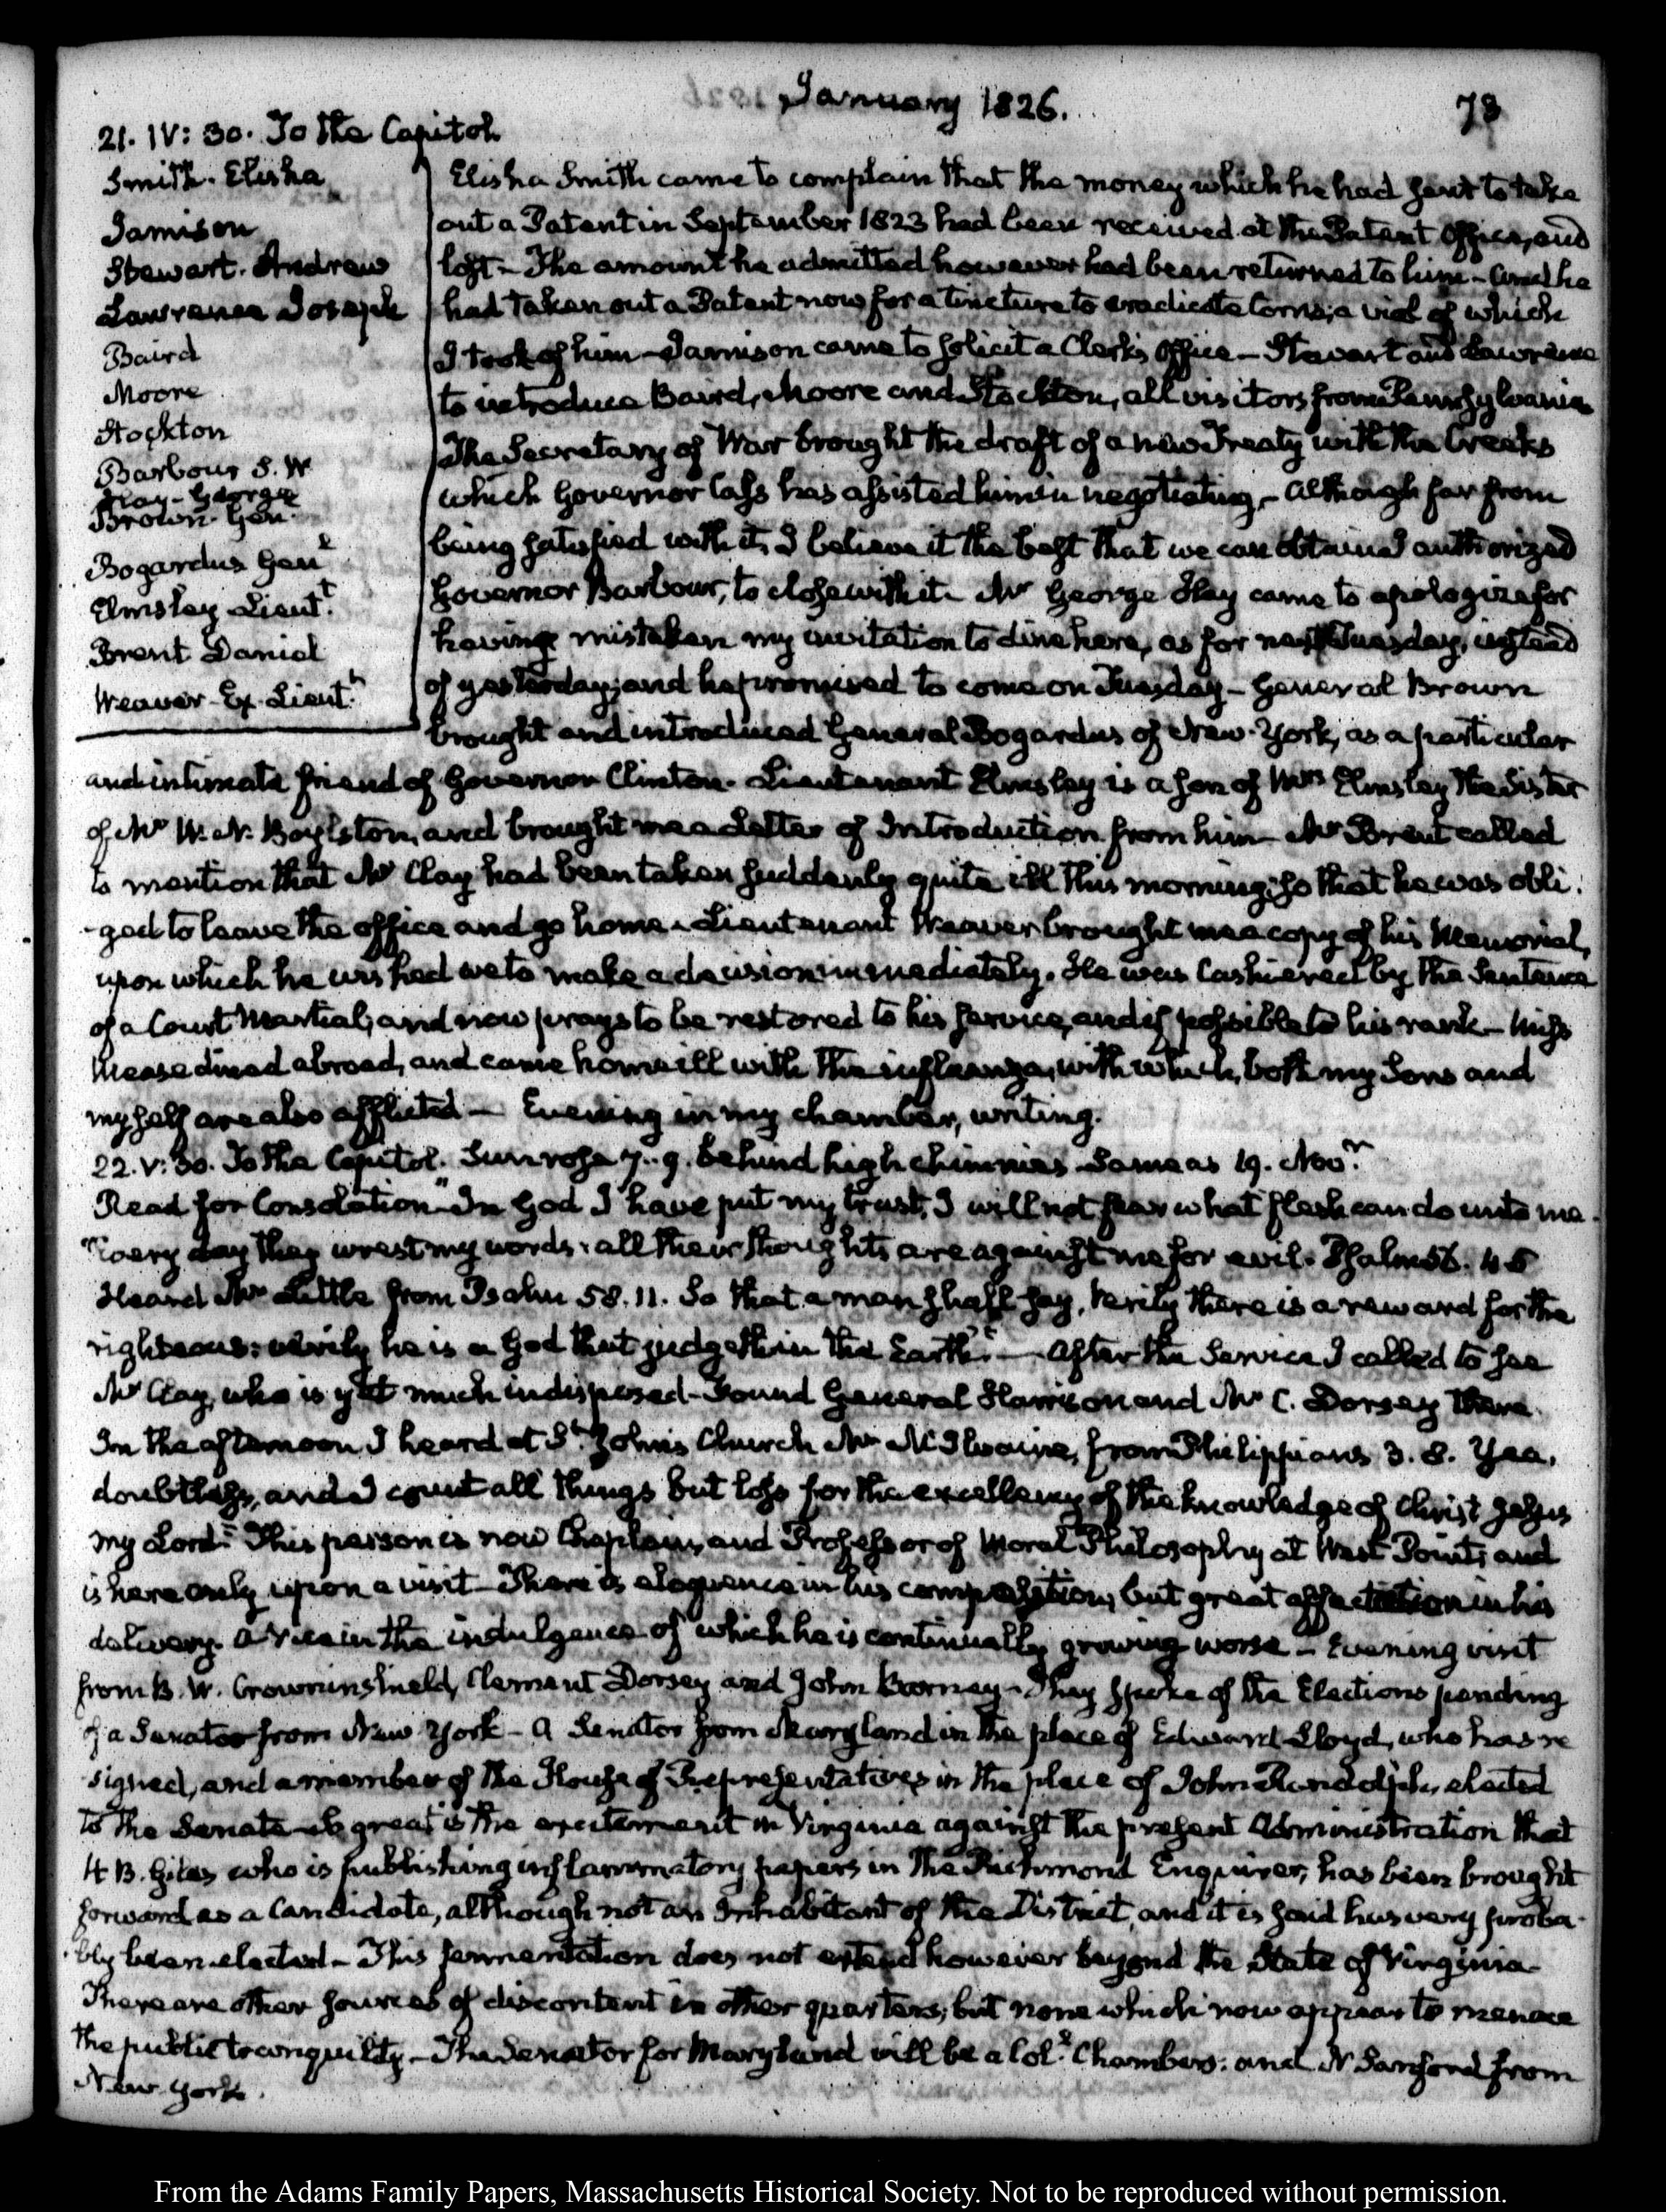 January 1826.
73
21. IV: 30. To the Capitol.
Smith. Elisha
Jamison
Stewart. Andrew
Lawrence Joseph
Baird
Moore
Stockton
Barbour S. W
Hay - George
Brown Gen.
Bogardus Genl
Elmsley Lieutt.
Brent Daniel
Weaver - Ex. Lieutt.
Elisha Smith came to complain that the money which he had sent to take
out a Patent in September 1823 had been received at the Patent Office, and
lost - The amount he admitted however had been returned to him - and he
had taken out a Patent now for a tincture to eradicate Corns; a viol of which
I took of him - Jamison came to solicit a Clerk's Office - Stewart and Lawrence
to introduce Baird, Moore and Stockton, all visitors from Pennsylvania
The Secretary of War brought the draft of a new Treaty with the Creeks
which Governor Cass has assisted him in negotiating - Although far from
being satisfied with it, I believe it the best that we can obtain I authorized
Governor Barbour, to close with it. Mr George Hay came to apologize for
having mistaken my invitation to dine here, as for next Tuesday, instead
of yesterday; and he promised to come on Tuesday - General Brown
brought and introduced General Bogardus of New-York, as a particular
and intimate friend of Governor Clinton. Lieutenant Elmsley is a son of Mrs Elmsley the Sister
of Mr W. N. Boylston, and brought me a Letter of Introduction from him - Mr Brent called
to mention that Mr Clay had been taken suddenly quite ill this morning; so that he was obli-
-ged to leave the office and go home. Lieutenant Weaver brought me a copy of his Memorial,
upon which he wished me to make a decision immediately. He was Cashiered by the Sentence
of a Court Martial; and now prays to be restored to his service, and if possible to his rank - Miss
Mease dined abroad, and came home ill with the influenza, with which, both my Sons and
myself are also afflicted - Evening in my chamber, writing.
22. V: 30. To the Capitol. Sun rose 7..9. behind high chimnies. Same as 19. Novr.
Read for Consolation "In God I have put my trust, I will not fear what flesh can do unto me.
"Every day they wrest my words: all their thoughts are against me for evil. Psalm 56. 4 5
Heard Mr Little from Psalm 58. 11. So that a man shall say, Verily there is a reward for the
righteous: verily he is a God that judgeth in the Earth." - After the Service I called to see
Mr Clay, who is yet much indisposed - Found General Harrison and Mr C. Dorsey there.
In the afternoon I heard at St. John's Church Mr McIlvaine, from Philippians 3. 8. Yea,
doubtless, and I count all things but loss for the excellency of the knowledge of Christ Jesus
my Lord." This person is now Chaplain, and Professor of Moral Philosophy at West Point; and
is here only upon a visit - There is eloquence in his composition, but great affectation in his
delivery. A vice in the indulgence of which he is continually growing worse - Evening visit
from B. W. Crowninshield, Clement Dorsey and John Barney - They spoke of the Elections pending
of a Senator from New York - A Senator from Maryland in the place of Edward Lloyd, who has re
signed, and a member of the House of Representatives in the place of John Randolph, elected
to the Senate - So great is the excitement in Virginia against the present Administration that
W B. Giles who is publishing inflammatory papers in the Richmond Enquirer, has been brought
forward as a Candidate, although not an Inhabitant of the District, and it is said has very proba-
-bly been elected - This fermentation does not extend however beyond the State of Virginia.
There are other sources of discontent in other quarters; but none which now appear to menace
the public tranquility - The Senator for Maryland will be a Coll. Chambers: and N Sanford from
New York.
From the Adams Family Papers, Massachusetts Historical Society. Not to be reproduced without permission.